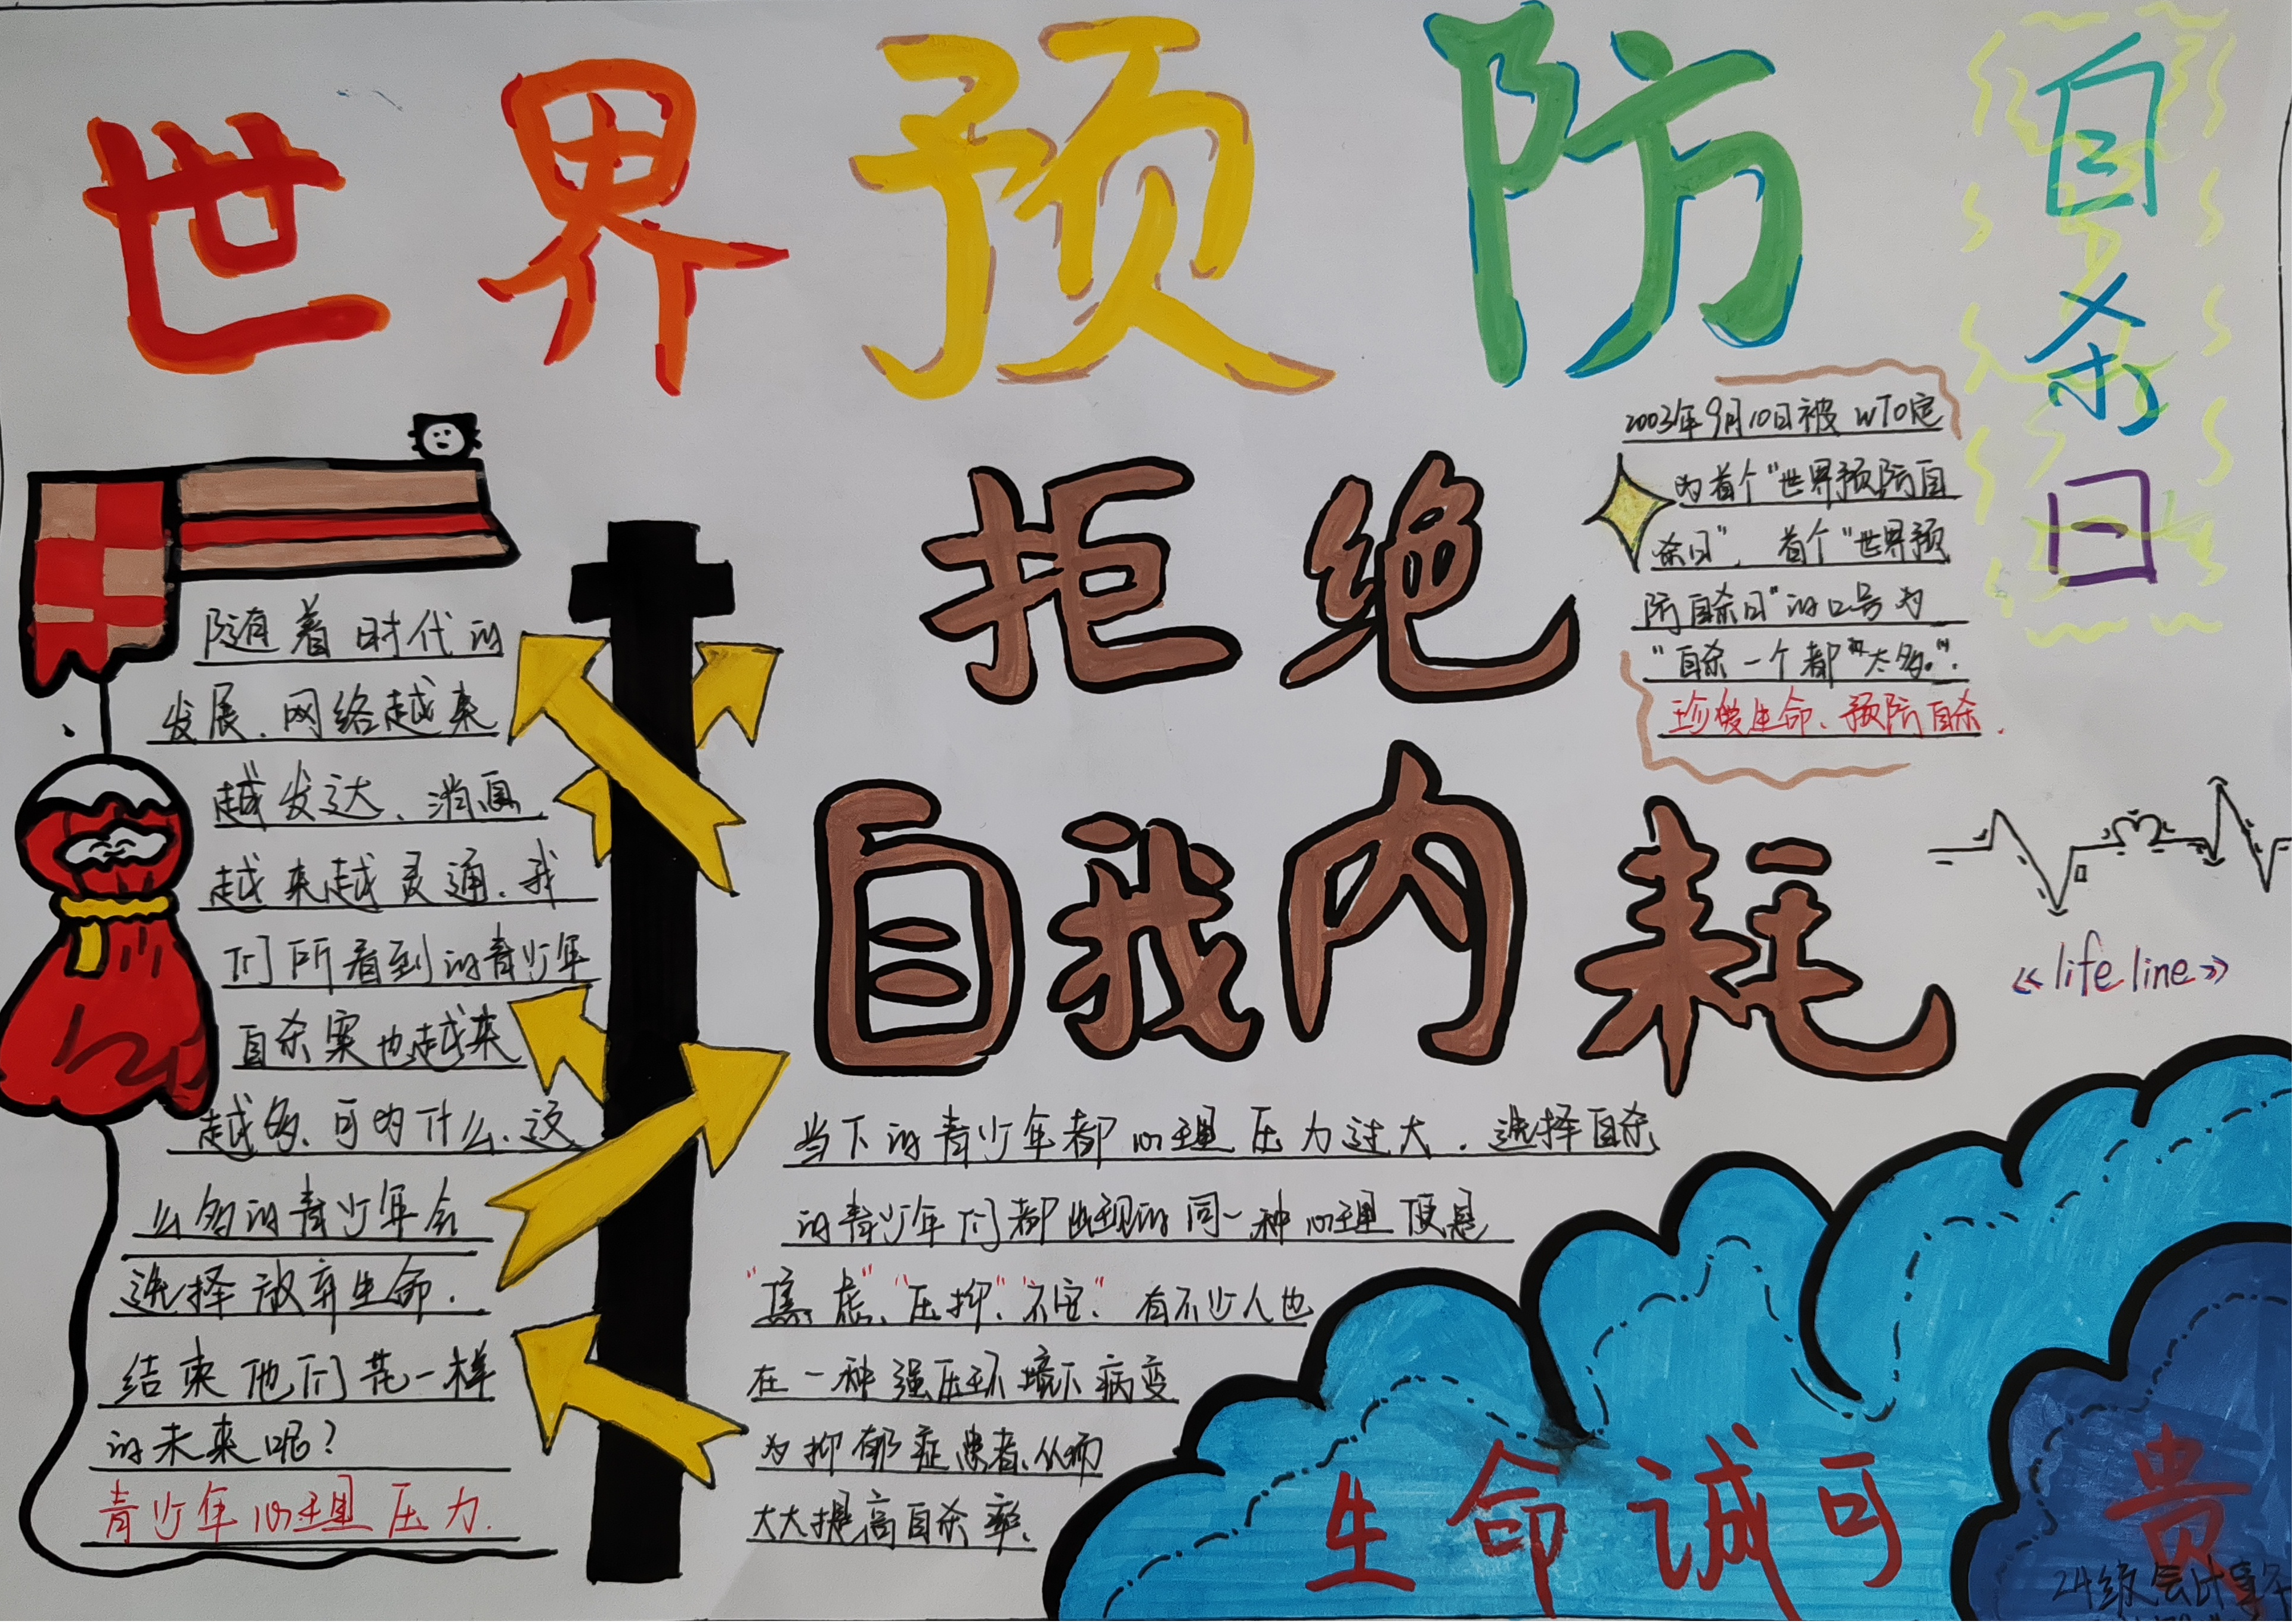 世界预防自杀日
2003年9月10日被WTO定
为首个“世界预防自
杀日”，首个“世界预
防自杀日”的口号为
“自杀一个都“太多。”．
珍爱生命、预防自杀．
拒绝
自我内耗
<<life line>>
随着时代的
发展、网络越来
越发达、消息
越来越灵通、我
们所看到的青少年
自杀案也越来
越多、可为什么、这
么多的青少年会
选择放弃生命．
结束他们花一样
的未来呢？
青少年心理压力．
当下的青少年都心理压力过大．选择自杀
的青少年们都出现的同一种心理便是
“焦虑”、“压抑”、“不安”、有不少人也
在一种强压环境下病变
为抑郁症患者、从而
大大提高自杀率．
生命诚可贵
24级会计